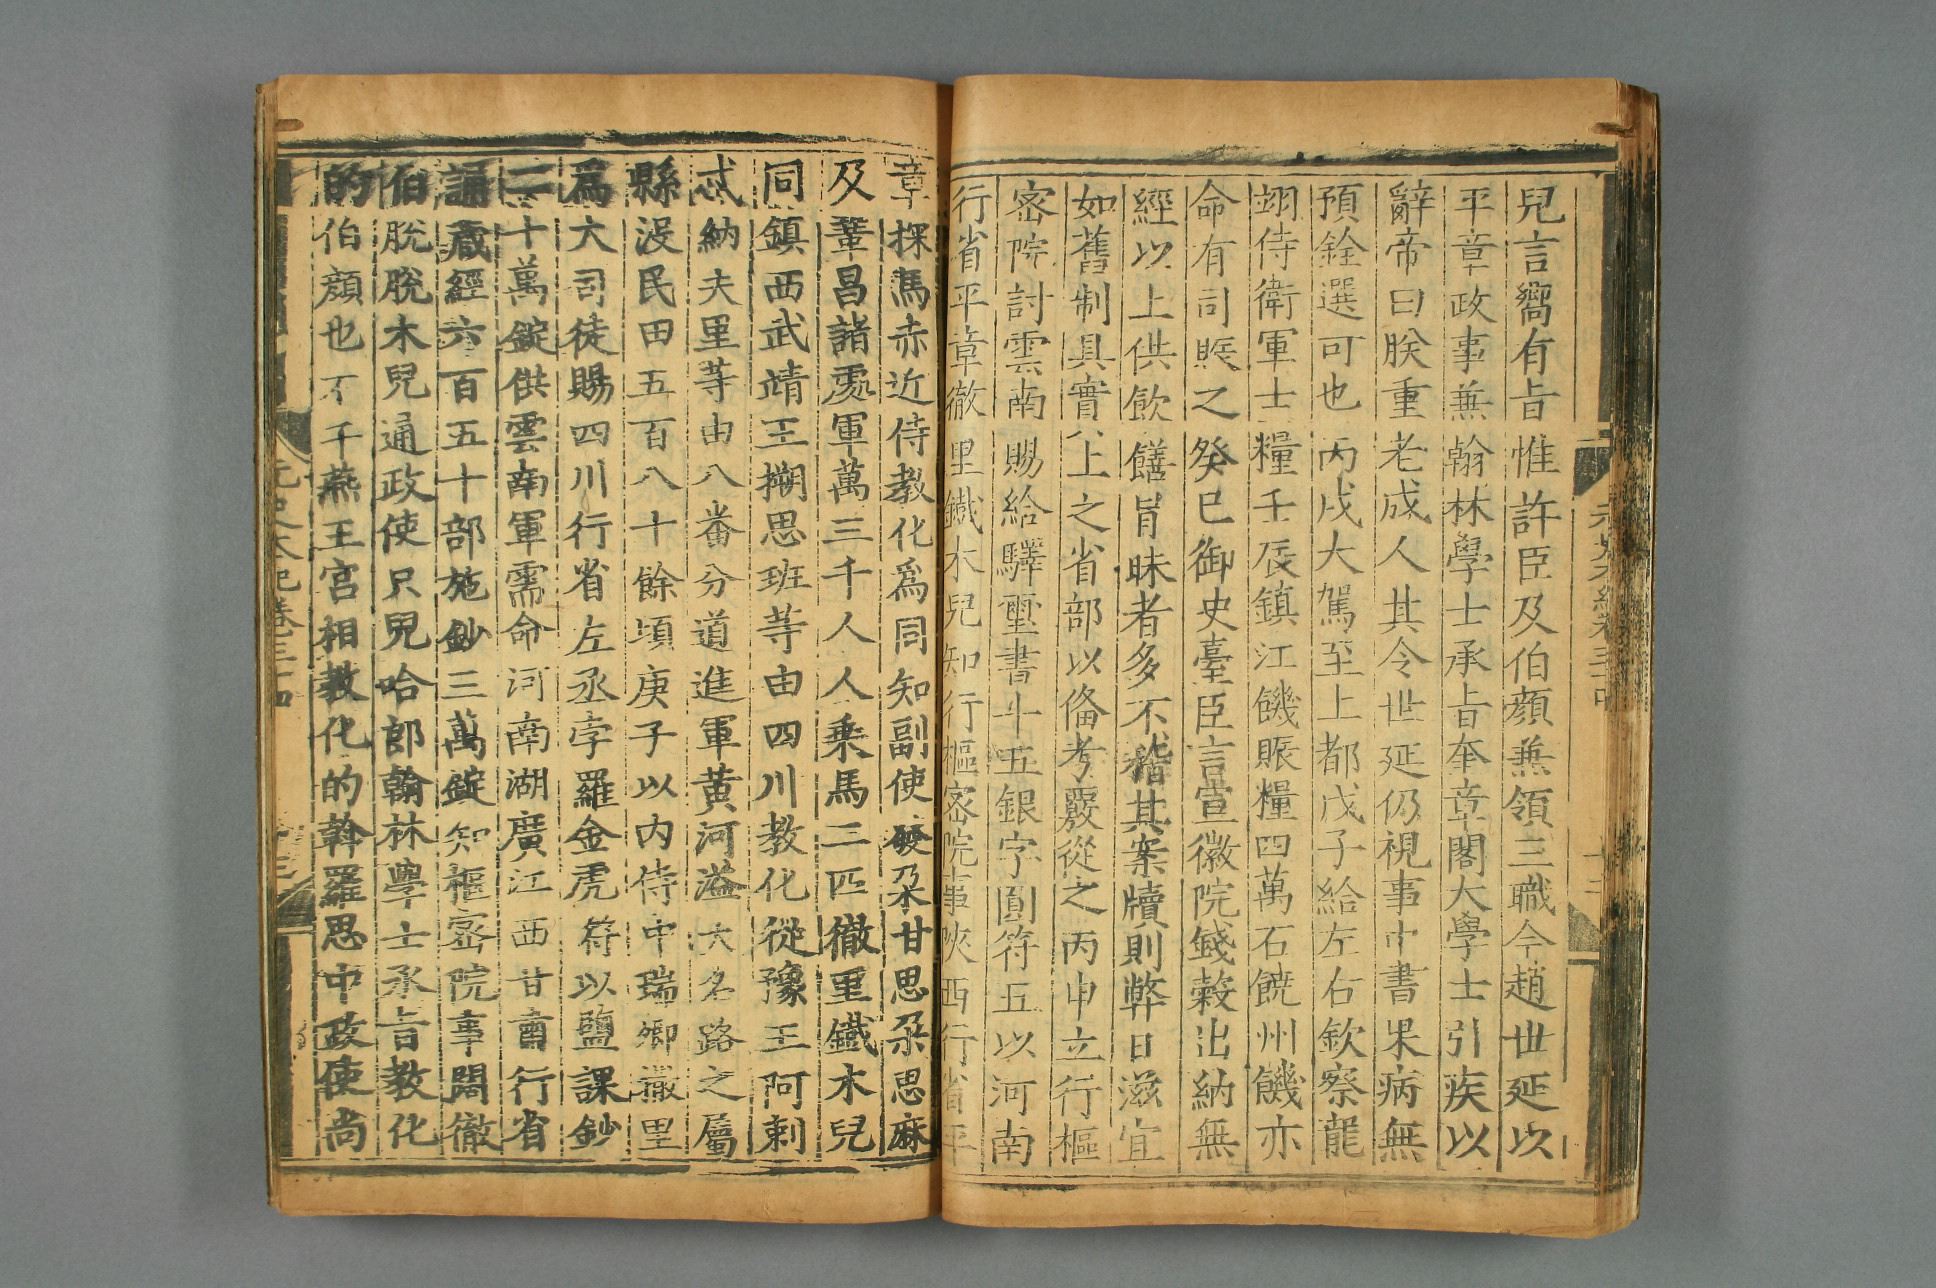 兒言嚮有旨惟許臣及伯顔兼領三職今趙世延以
平章政事兼翰林學士承旨奎章閣大學士引疾以
辭帝曰朕重老成人其令世延仍視事中書果病無
預銓選可也丙戌大駕至上都戊子給左右欽察龍
翊侍衛軍士糧壬辰鎮江饑賑糧四萬石饒州饑亦
命有司賑之癸巳御史臺臣言宣徽院錢穀出納無
經以上供飲饍冒昧者多不稽其案牘則弊日滋宜
如舊制具實上之省部以備考覈從之丙申立行樞
密院討雲南賜給驛璽書十五銀字圓符五以河南
行省平章徹里鐵木兒知行樞密院事陜西行省平
章探馬赤近侍教化爲同知副使發朶甘思朶思麻
及鞏昌諸處軍萬三千人人乗馬二匹徹里鐵木兒
同鎮西武靖王搠思班等由四川教化從豫王阿剌
忒納失里等由八番分道進軍黄河溢大名路之屬
縣没民田五百八十餘頃庚子以内侍中瑞卿撒里
爲大司徒賜四川行省左丞孛羅金虎符以鹽課鈔
二十萬錠供雲南軍需命河南湖廣江西甘肅行省
誦藏經六百五十部施鈔三萬錠知樞密院事闊徹
伯脫脫木兒通政使只兒哈郎翰林學士承旨教化
的伯顔也不干燕王宮相教化的斡羅思中政使尚
元史本紀卷三十四